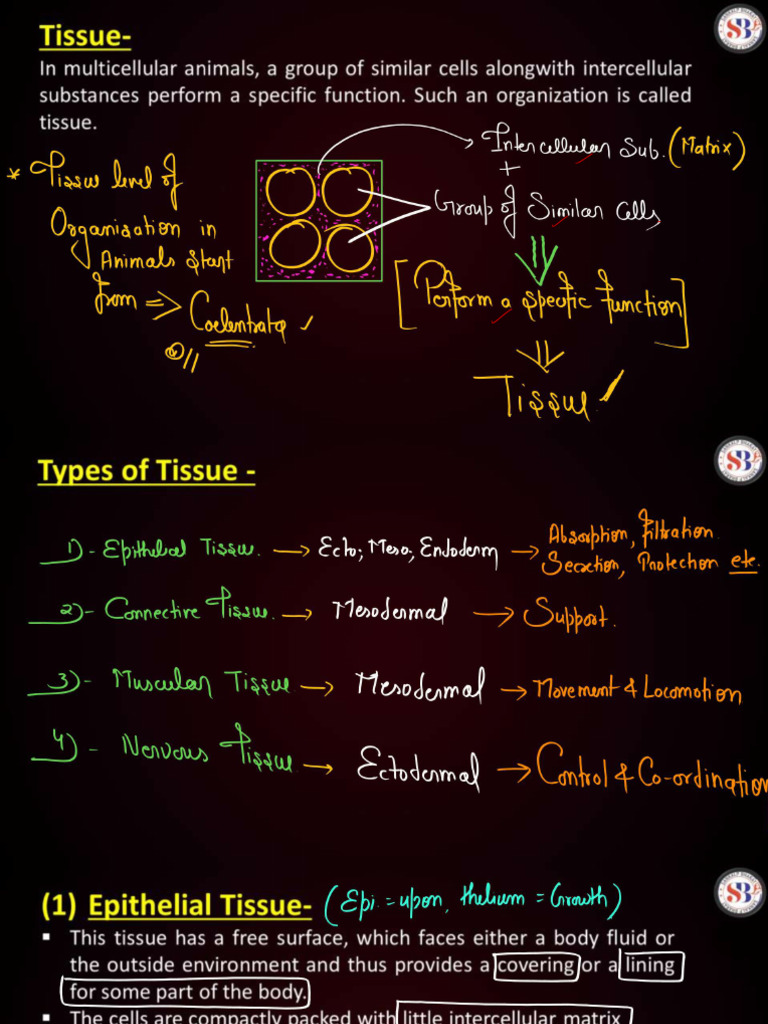 Tissue-
In multicellular animals, a group of similar cells alongwith intercellular
substances perform a specific function. Such an organization is called
tissue.
* Tissue level of
Organisation in
Animals start
from => Coelentrata
Intercellular Sub. (Matrix)
+
Group of Similar Cells
[Perform a specific function]
Tissue
Types of Tissue -
1) - Epithelial Tissue. → Ecto, Meso, Endoderm → Absorption, filtration
Secretion, Protection etc.
2) - Connective Tissue. → Mesodermal → Support.
3) - Muscular Tissue → Mesodermal → Movement & Locomotion
4) - Nervous Tissue → Ectodermal → Control & Co-ordination
(1) Epithelial Tissue- (Epi = upon, thelium = Growth)
▪ This tissue has a free surface, which faces either a body fluid or
the outside environment and thus provides a covering or a lining
for some part of the body.
▪ The cells are compactly packed with little intercellular matrix.